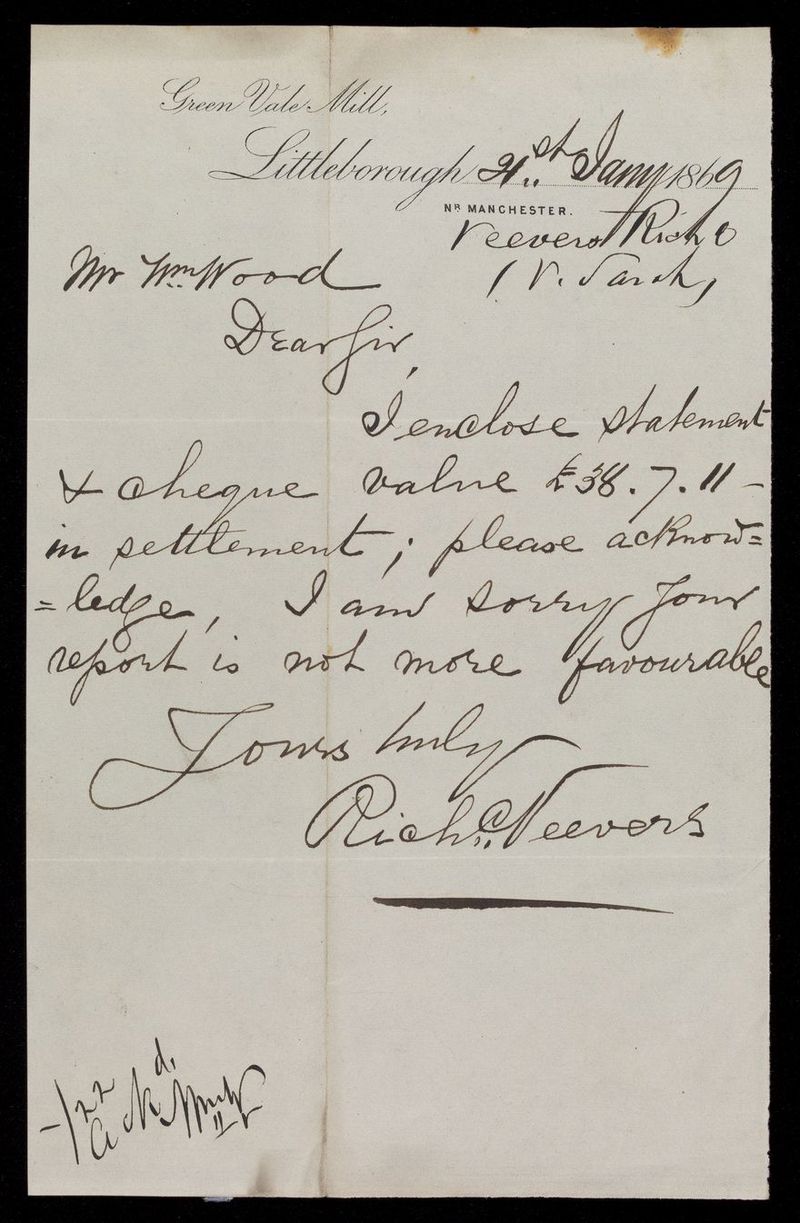 Green Vale Mill,
Littleborough 21st Jany 1869
NR MANCHESTER.
Veevers Richd
(V. Sarah)
Mr Wm Wood
Dear Sir,
I enclose statement
& cheque value £38.7.11 -
in settlement; please acknow=
=ledge, I am sorry your
report is not more favourable
Yours truly
Richd Veevers
1/22
Ackd.